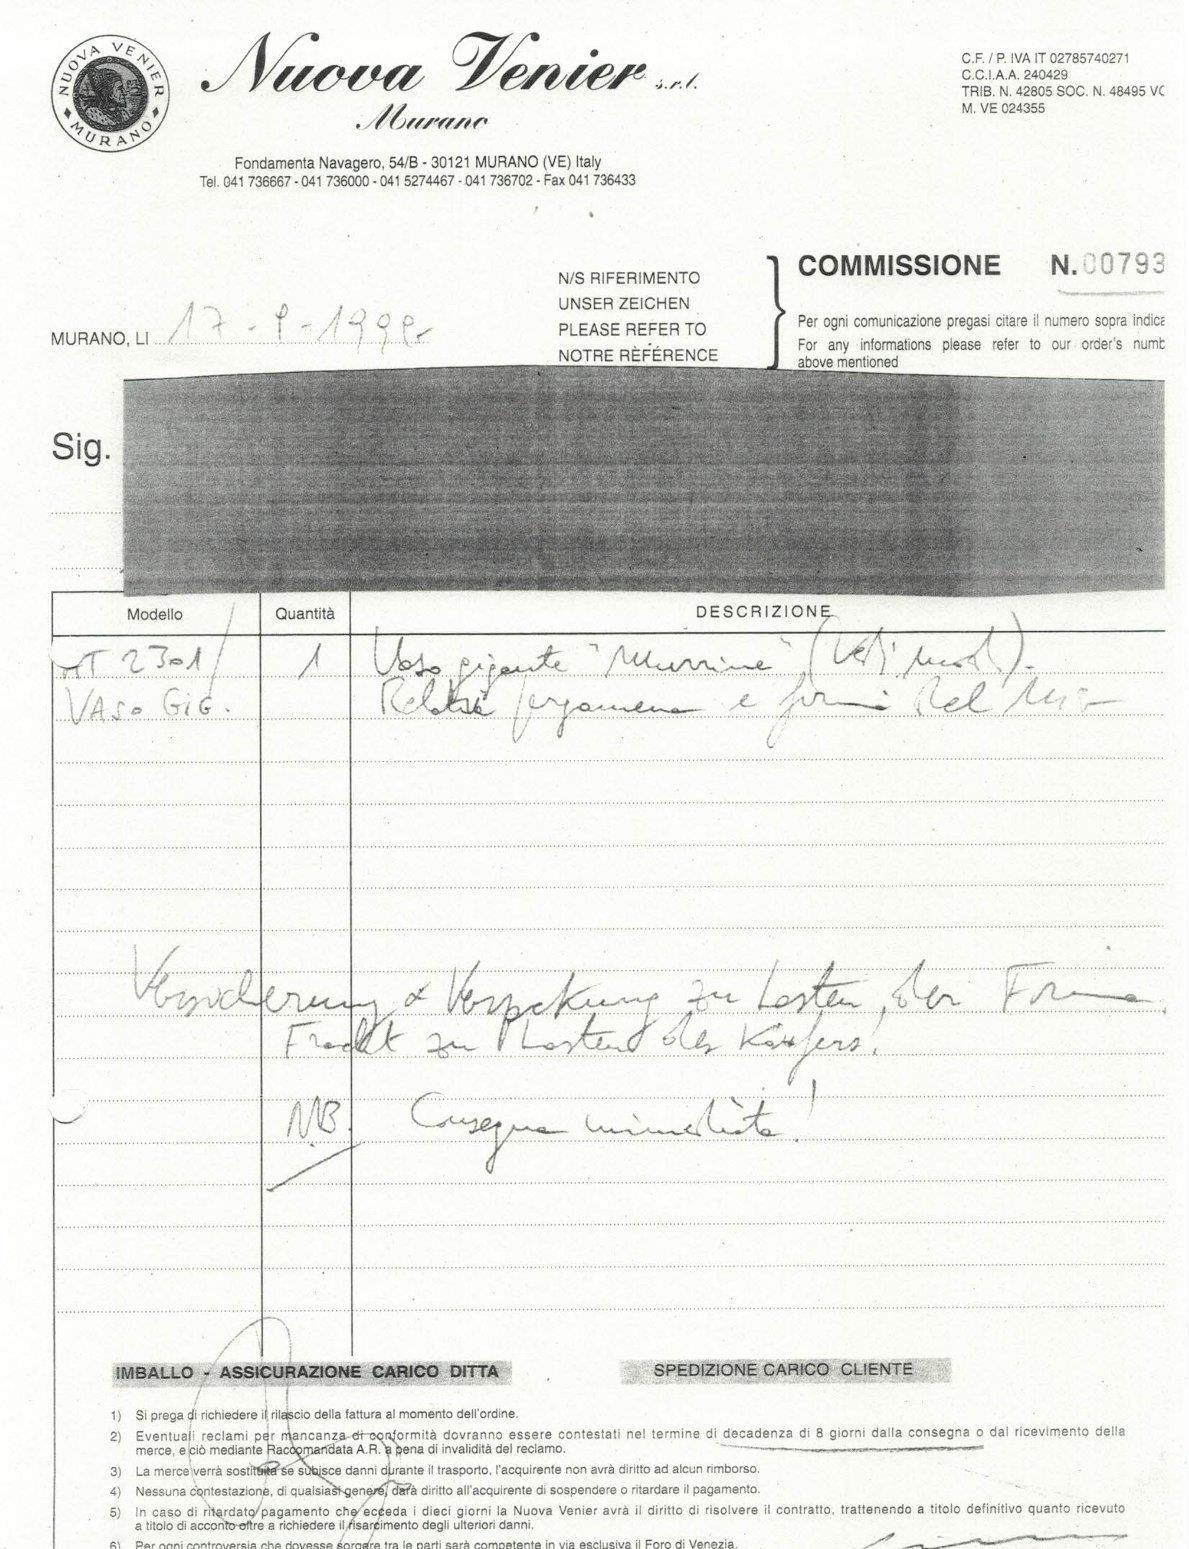 NUOVA VENIER
MURANO
Nuova Venier s.r.l.
Murano
Fondamenta Navagero, 54/B - 30121 MURANO (VE) Italy
Tel. 041 736667 - 041 736000 - 041 5274467 - 041 736702 - Fax 041 736433
C.F. / P. IVA IT 02785740271
C.C.I.A.A. 240429
TRIB. N. 42805 SOC. N. 48495 VC
M. VE 024355
N/S RIFERIMENTO
UNSER ZEICHEN
PLEASE REFER TO
NOTRE RÈFÉRENCE
COMMISSIONE N. 00793
Per ogni comunicazione pregasi citare il numero sopra indica
For any informations please refer to our order's numb
above mentioned
MURANO, LI 17-9-1999-
Sig.
Modello Quantità DESCRIZIONE
2301 1 Vaso gigante "Murrine"
VASO GIG. pergamena e
Versicherung & Verpackung zu Lasten der Firma
Fracht zu Lasten des Käufers!
NB. Consegna immediata!
IMBALLO - ASSICURAZIONE CARICO DITTA
SPEDIZIONE CARICO CLIENTE
1) Si prega di richiedere il rilascio della fattura al momento dell'ordine.
2) Eventuali reclami per mancanza di conformità dovranno essere contestati nel termine di decadenza di 8 giorni dalla consegna o dal ricevimento della
merce, e ciò mediante Raccomandata A.R. a pena di invalidità del reclamo.
3) La merce verrà sostituita se subisce danni durante il trasporto, l'acquirente non avrà diritto ad alcun rimborso.
4) Nessuna contestazione, di qualsiasi genere, darà diritto all'acquirente di sospendere o ritardare il pagamento.
5) In caso di ritardato pagamento che ecceda i dieci giorni la Nuova Venier avrà il diritto di risolvere il contratto, trattenendo a titolo definitivo quanto ricevuto
a titolo di acconto oltre a richiedere il risarcimento degli ulteriori danni.
6) Per ogni controversia che dovesse sorgere tra le parti sarà competente in via esclusiva il Foro di Venezia.